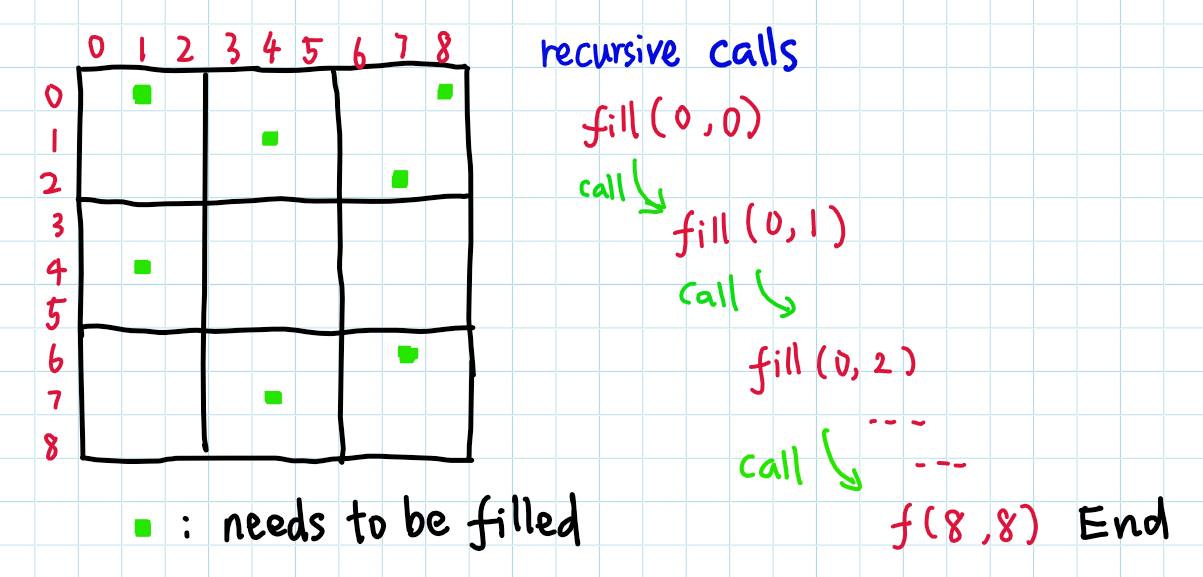 0 1 2 3 4 5 6 7 8
0
1
2
3
4
5
6
7
8
: needs to be filled
recursive calls
fill(0,0)
call
fill(0,1)
call
fill(0,2)
----
call
---
f(8,8) End